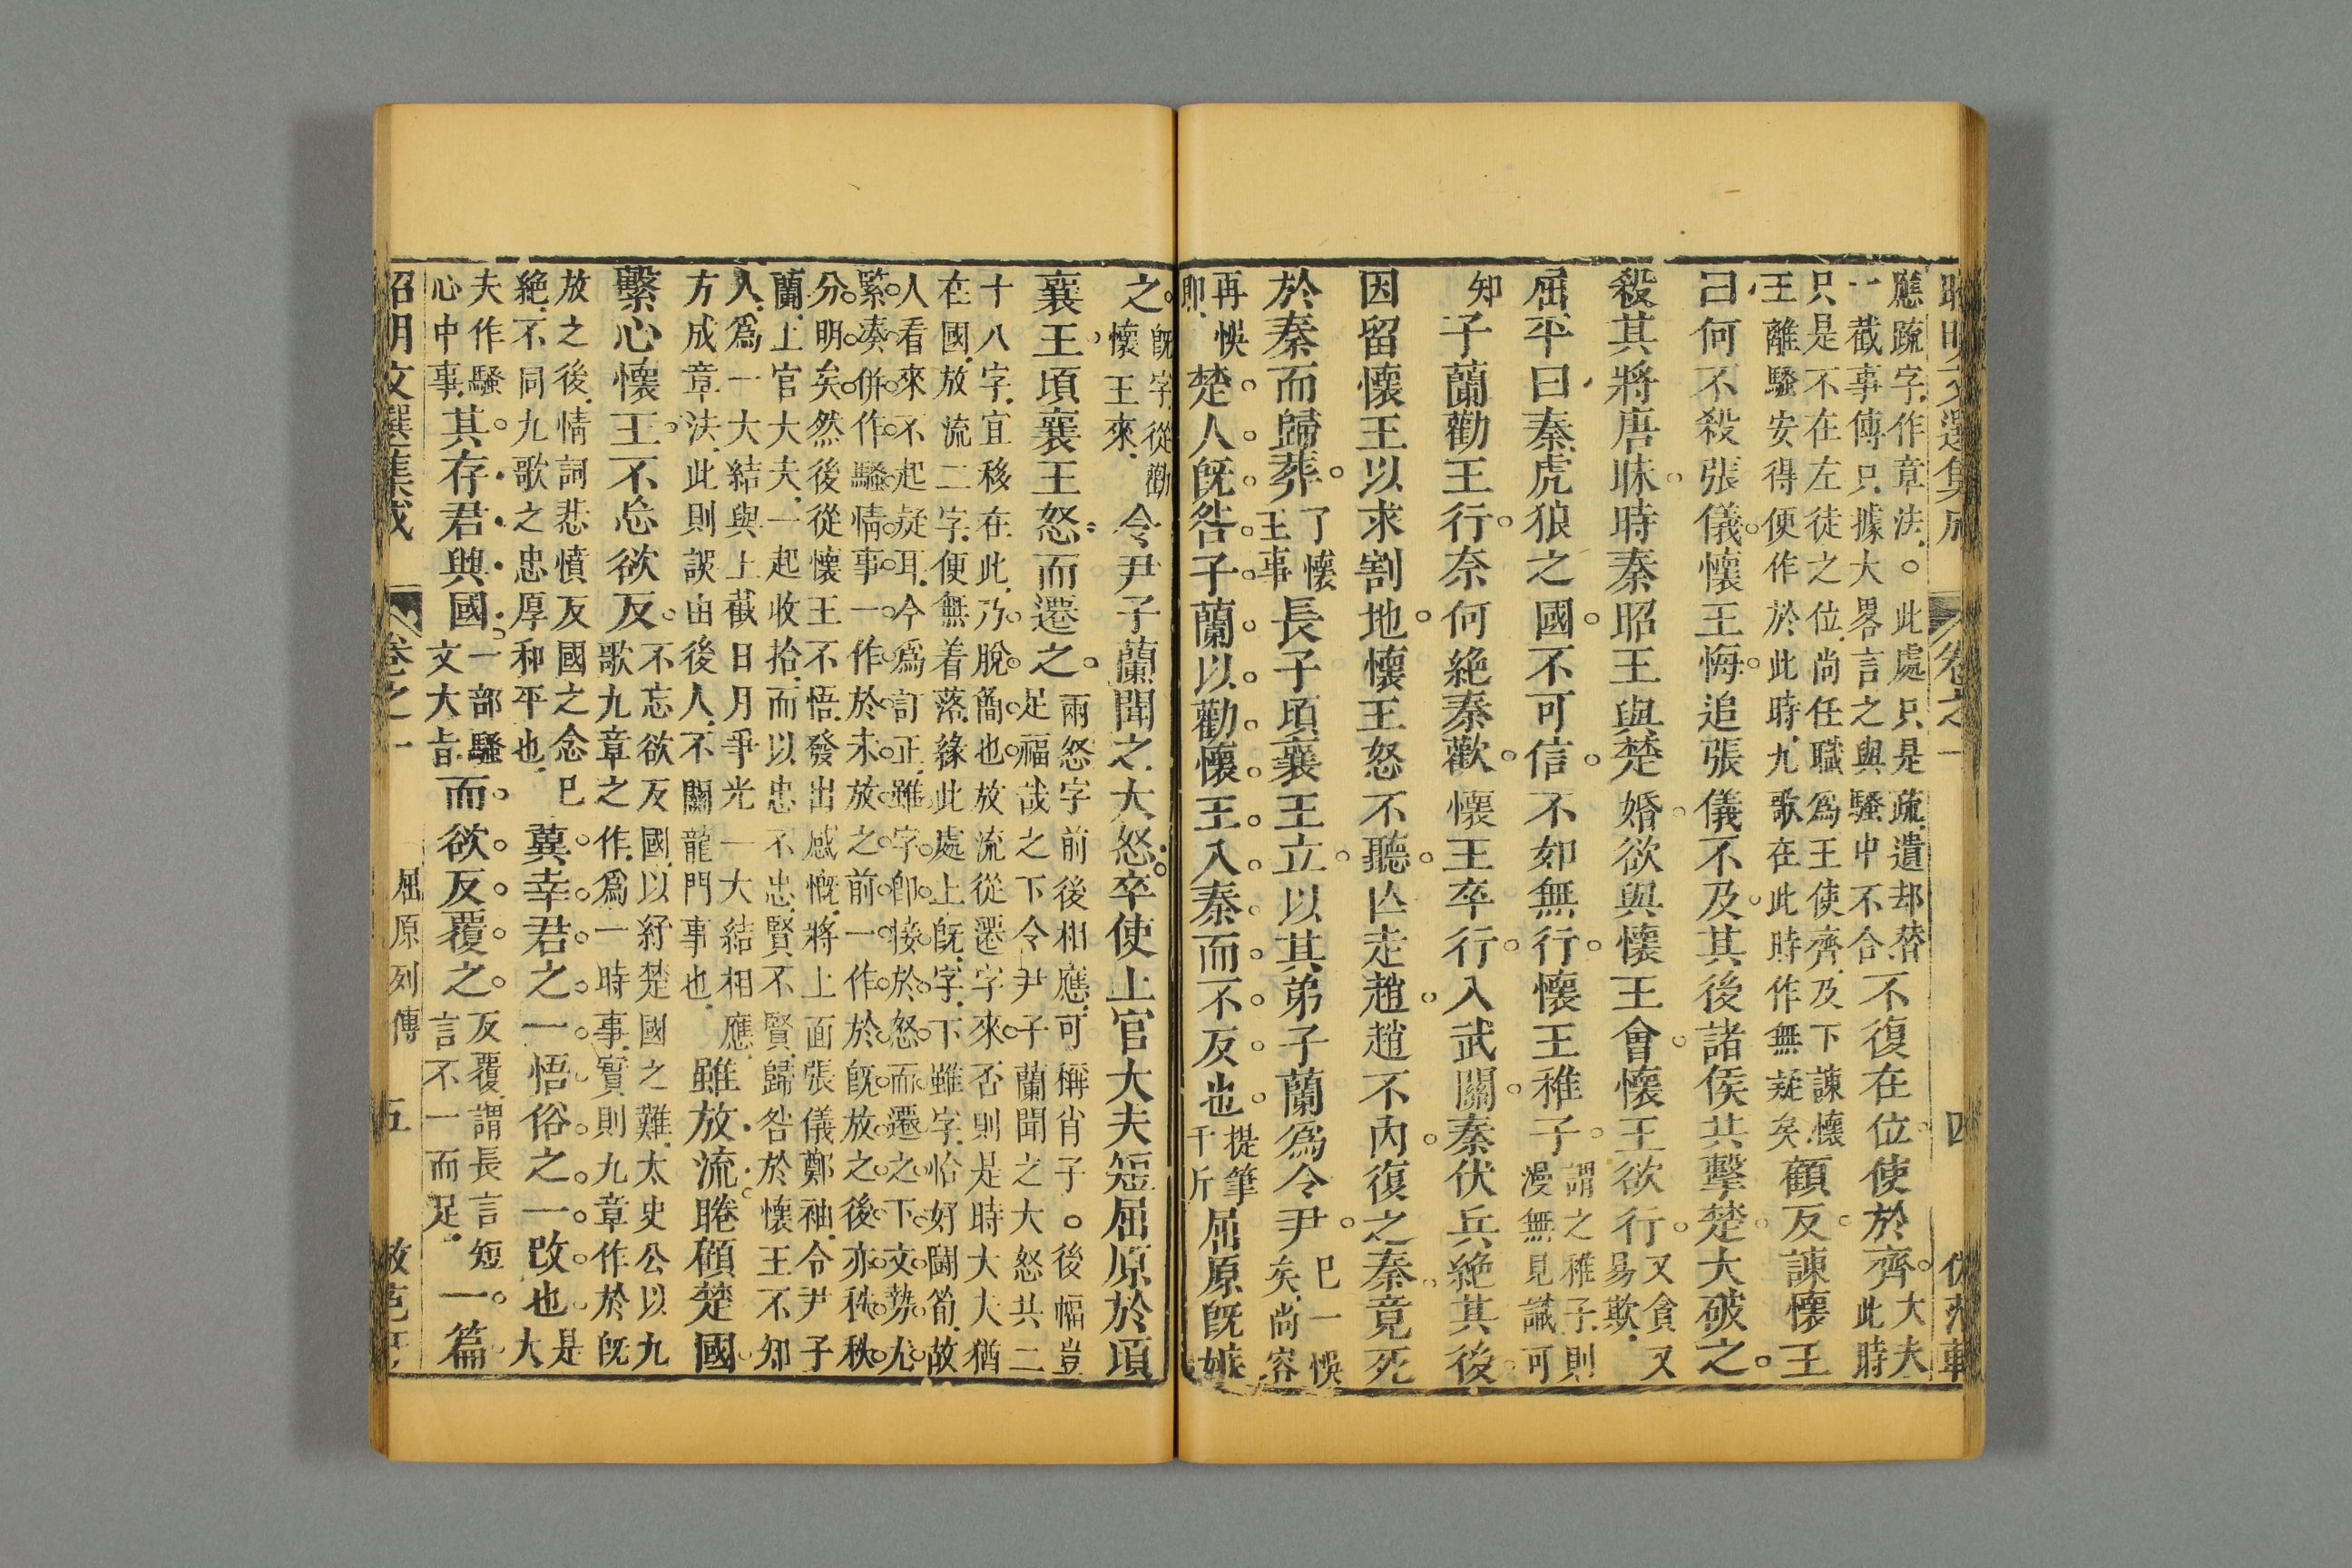 昭明文選集成 卷之一 四
應疏字作章法。此處只是疏遣却替
一截事傳只據大畧言之與騷中不合不復在位使於齊大夫
只是不在左徒之位尚任職為王使齊及下諫懷此時
王離騷安得便作於此時九歌在此時作無疑矣顧反諫懷王
曰何不殺張儀懷王悔追張儀不及其後諸侯共擊楚大破之
殺其將唐昧時秦昭王與楚婚欲與懷王會懷王欲行又貪又易欺
屈平曰秦虎狼之國不可信不如無行懷王稚子謂之稚子則漫無見識可
知子蘭勸王行奈何絕秦歡懷王卒行入武關秦伏兵絕其後
因留懷王以求割地懷王怒不聽亾走趙趙不內復之秦竟死
於秦而歸葬了懷王事長子頃襄王立以其弟子蘭為令尹已一悞矣尚容
再悞即楚人旣咎子蘭以勸懷王入秦而不反也提筆千斤屈原旣嫉
之旣字從勸懷王來令尹子蘭聞之大怒卒使上官大夫短屈原於頃
襄王頃襄王怒而遷之兩怒字前後相應可稱肖子。後幅豈
足福哉之下令尹子蘭聞之大怒共二
十八字宜移在此乃脫簡也放流從遷字來否則是時大夫猶
在國放流二字便無着落緣此處上旣字下雖字恰好鬭筍故
人看來不起疑耳今為訂正雖字卽接於怒而遷之下文勢尤
緊湊併作騷情事一作於未放之前一作於旣放之後亦秩秩
分明矣然後從懷王不悟發出感慨將上面張儀鄭袖令尹子
蘭上官大夫一起收拾而以忠不忠賢不賢歸咎於懷王不知
人為一大結與上截日月爭光一大結相應
方成章法此則誤由後人不關龍門事也雖放流睠顧楚國
繫心懷王不忘欲反不忘欲反國以紓楚國之難太史公以九
歌九章之作為一時事實則九章作於旣
放之後情詞悲憤反國之念已
絕不同九歌之忠厚和平也冀幸君之一悟俗之一改也是大
夫作騷心中事其存君與國一部騷文大旨而欲反覆之反覆謂長言短言不一而足一篇
昭明文選集成 卷之一 屈原列傳 五